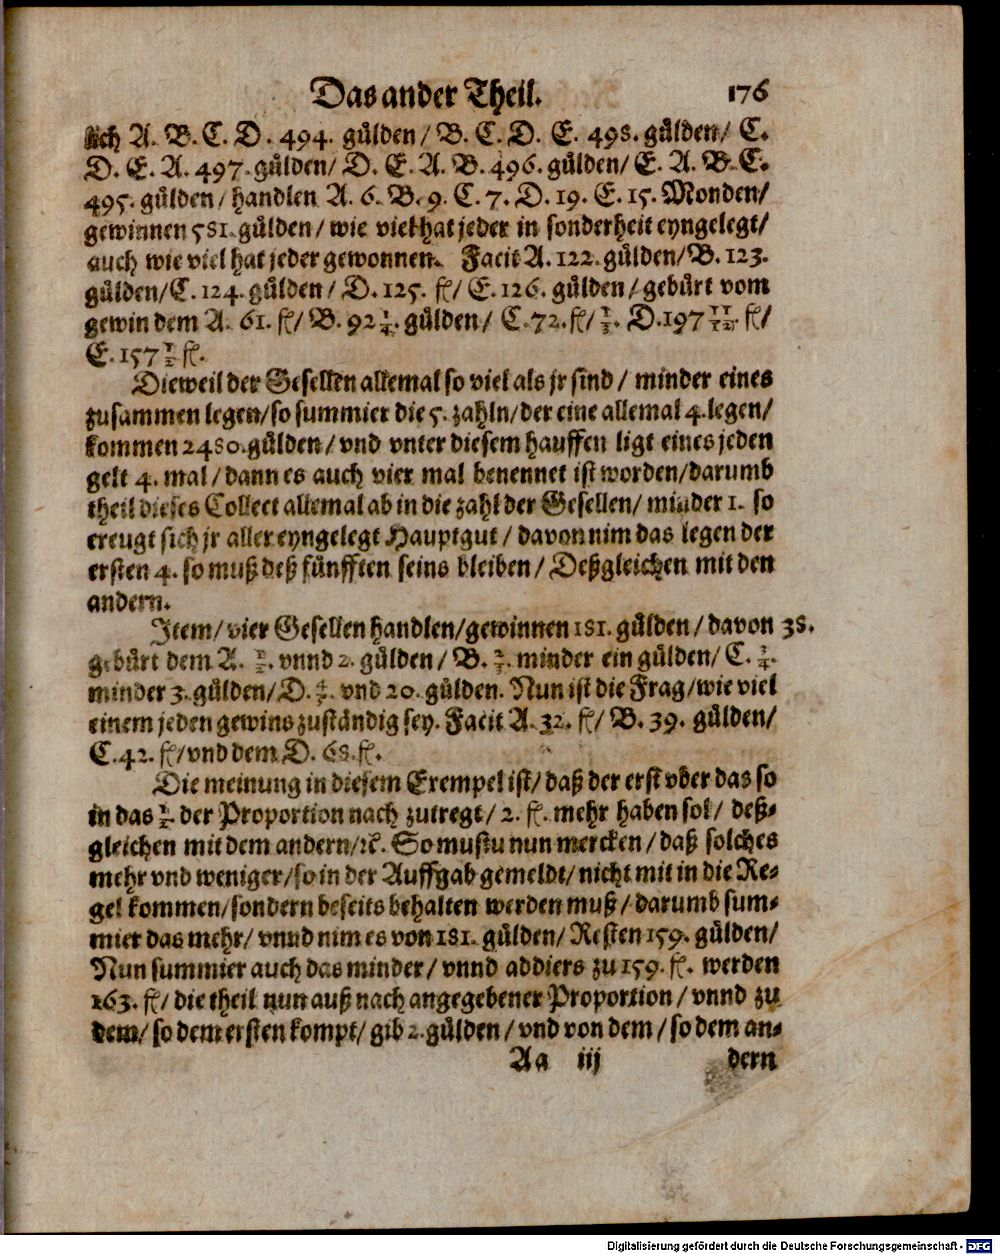 Das ander Theil. 176
lich A. B. C. D. 494. gülden / B. C. D. E. 498. gülden / C.
D. E. A. 497. gülden / D. E. A. B. 496. gülden / E. A. B. C.
495. gülden / handlen A. 6. B. 9. C. 7. D. 19. E. 15. Monden /
gewinnen 581. gülden / wie viel hat jeder in sonderheit eyngelegt /
auch wie viel hat jeder gewonnen. Facit A. 122. gülden / B. 123.
gülden / C. 124. gülden / D. 125. fl / E. 126. gülden / gebürt vom
gewin dem A. 61. fl / B. 92 1/4. gülden / C. 72. fl / 1/3. D. 197 11/12. fl /
E. 157 1/2 fl.
Dieweil der Gesellen allemal so viel als jr sind / minder eines
zusammen legen / so summier die 5. zahln / der eine allemal 4. legen /
kommen 2480. gülden / vnd vnter diesem hauffen ligt eines jeden
gelt 4. mal / dann es auch vier mal benennet ist worden / darumb
theil dieses Collect allemal ab in die zahl der Gesellen / minder 1. so
ereugt sich jr aller eyngelegt Hauptgut / davon nim das legen der
ersten 4. so muß deß fünfften seins bleiben / Deßgleichen mit den
andern.
Item / vier Gesellen handlen / gewinnen 181. gülden / davon 38.
gebürt dem A. 1/2. vnnd 2. gülden / B. 2/3. minder ein gülden / C. 3/4.
minder 3. gülden / D. 4/5. vnd 20. gülden. Nun ist die Frag / wie viel
einem jeden gewins zuständig sey. Facit A. 32. fl / B. 39. gülden /
C. 42. fl / vnd dem D. 68. fl.
Die meinung in diesem Exempel ist / daß der erst vber das so
in das 1/2. der Proportion nach zutregt / 2. fl. mehr haben sol / deß-
gleichen mit dem andern / ꝛc. So mustu nun mercken / daß solches
mehr vnd weniger / so in der Auffgab gemeldt / nicht mit in die Re-
gel kommen / sondern beseits behalten werden muß / darumb sum-
mier das mehr / vnnd nim es von 181. gülden / Resten 159. gülden /
Nun summier auch das minder / vnnd addiers zu 159. fl. werden
163. fl / die theil nun auß nach angegebener Proportion / vnnd zu
dem / so dem ersten kompt / gib 2. gülden / vnd von dem / so dem an-
Aa iij dern
Digitalisierung gefördert durch die Deutsche Forschungsgemeinschaft - DFG